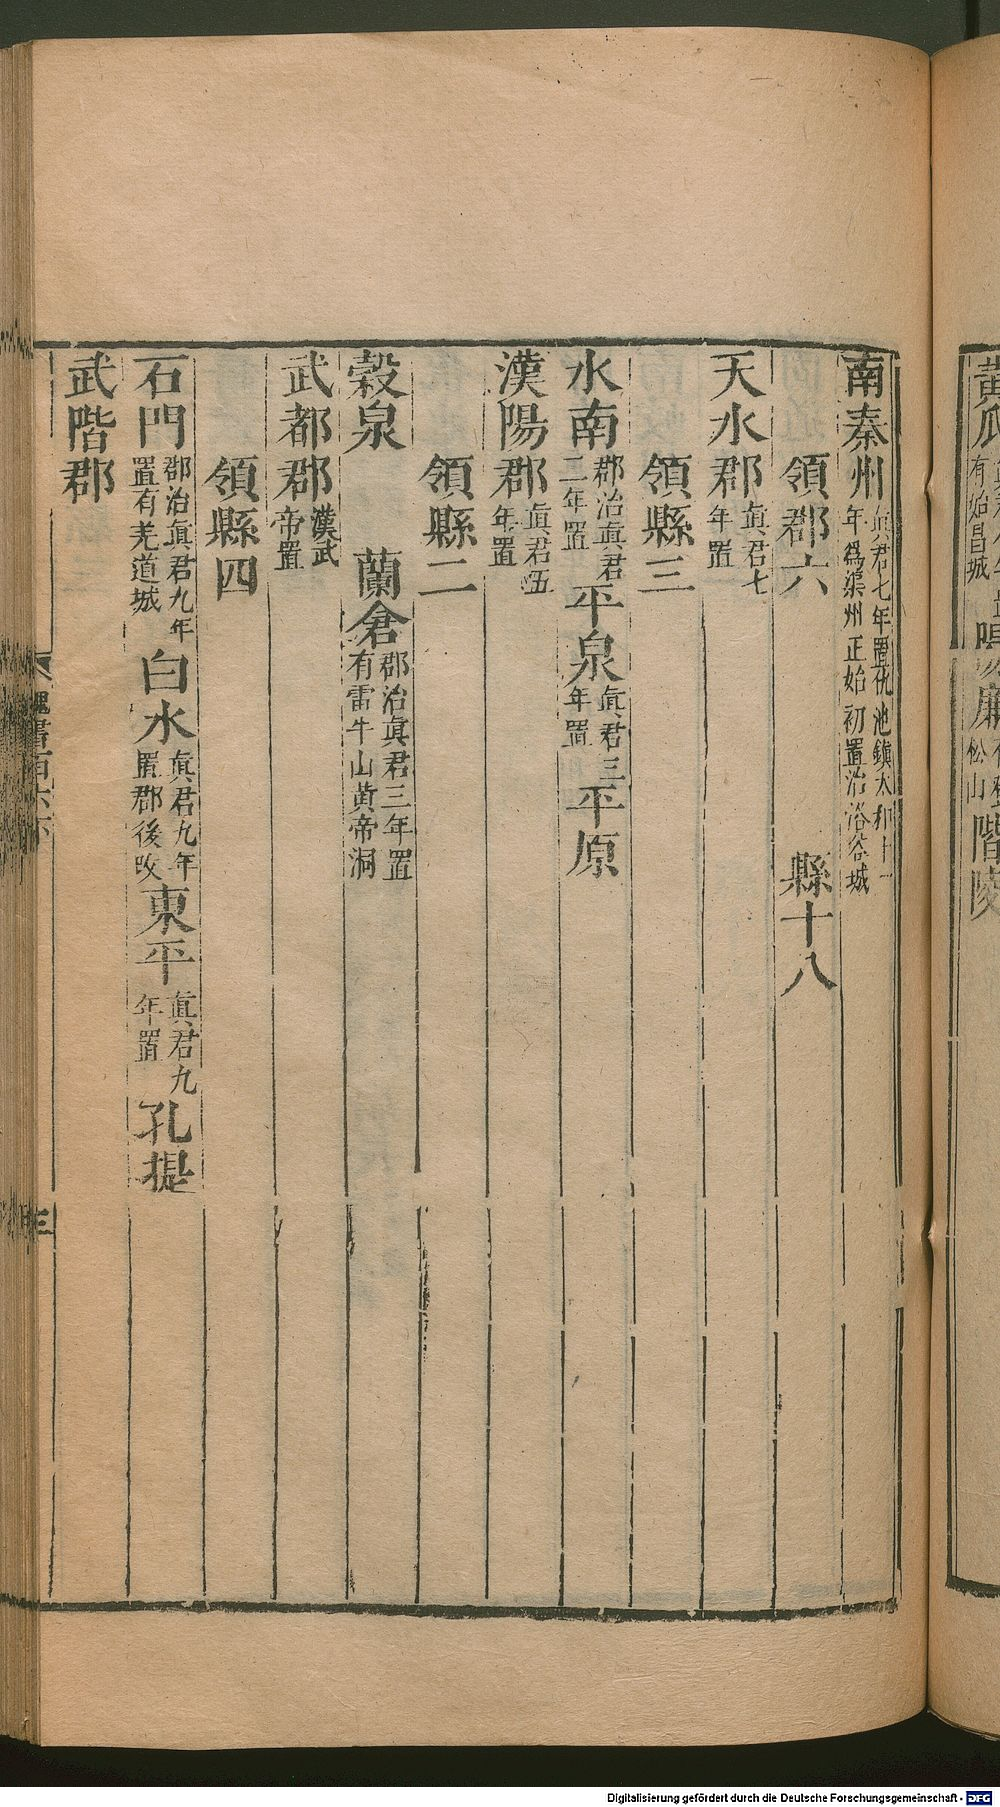 南秦州眞君七年置仇池鎮太和十一年爲梁州正始初置治洛谷城
領郡六 縣十八
天水郡眞君七年置
領縣三
水南郡治眞君二年置平泉眞君三年置平原
漢陽郡眞君五年置
領縣二
穀泉 蘭倉郡治眞君三年置有雷牛山黃帝洞
武都郡漢武帝置
領縣四
石門郡治眞君九年置有羌道城白水眞君九年置郡後改東平眞君九年置孔提
武階郡
魏書百六下
三
黃瓜
有始昌城
階陵
Digitalisierung gefördert durch die Deutsche Forschungsgemeinschaft - DFG